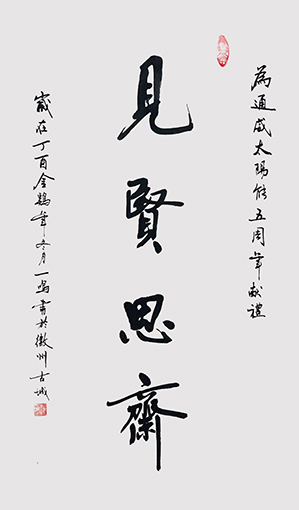 為通威太陽能五周年献禮
見賢思齋
歲在丁酉金鷄年冬月一鳴書於徽州古城